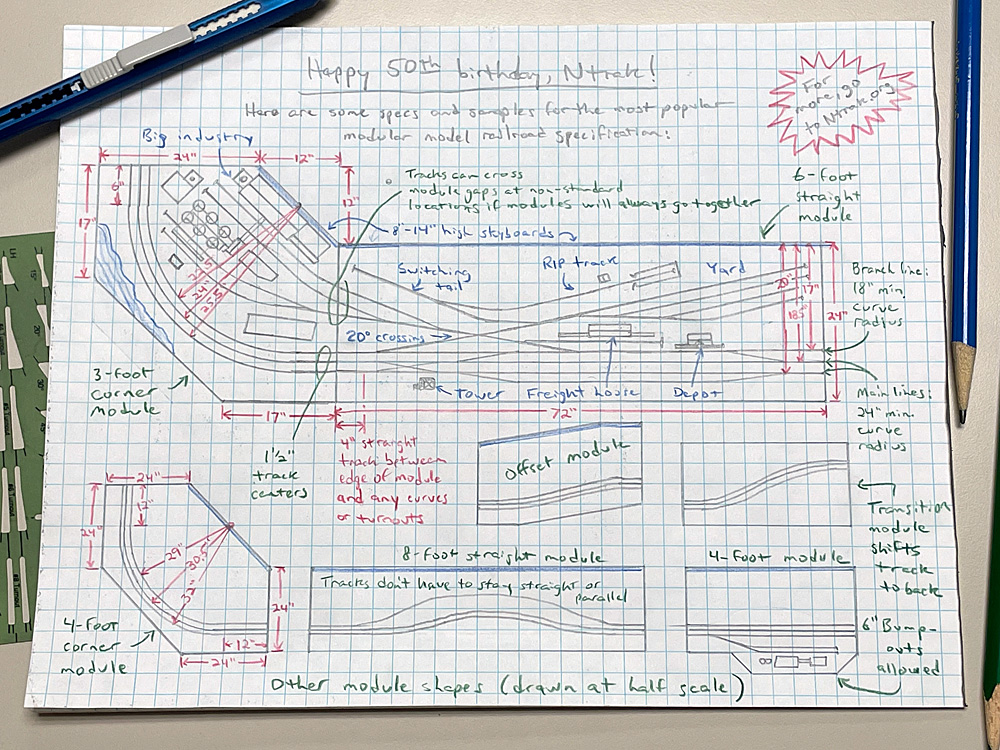 Happy 50th birthday, Ntrak!
Here are some specs and samples for the most popular
modular model railroad specification:
For
more, go
to Ntrak.org
Big industry
24"
12"
6"
17"
12"
Tracks can cross
module gaps at non-standard
locations if modules will always go together
6-foot
straight
module
8"-14" high skyboards
Switching
tail
RIP track
Yard
20"
17"
18.5"
24"
Branch line:
18" min.
curve
radius
20° crossing
3-foot
corner
module
Tower
Freight house
Depot
17"
72"
Main lines:
24" min.
curve
radius
1 1/2"
track
centers
4" straight
track between
edge of module
and any curves
or turnouts
Offset module
Transition
module
shifts
track
to back
24"
12"
24"
29"
30.5"
32"
24"
12"
24"
4-foot
corner
module
8-foot straight module
Tracks don't have to stay straight or
parallel
4-foot module
6" Bump-
outs
allowed
Other module shapes (drawn at half scale)